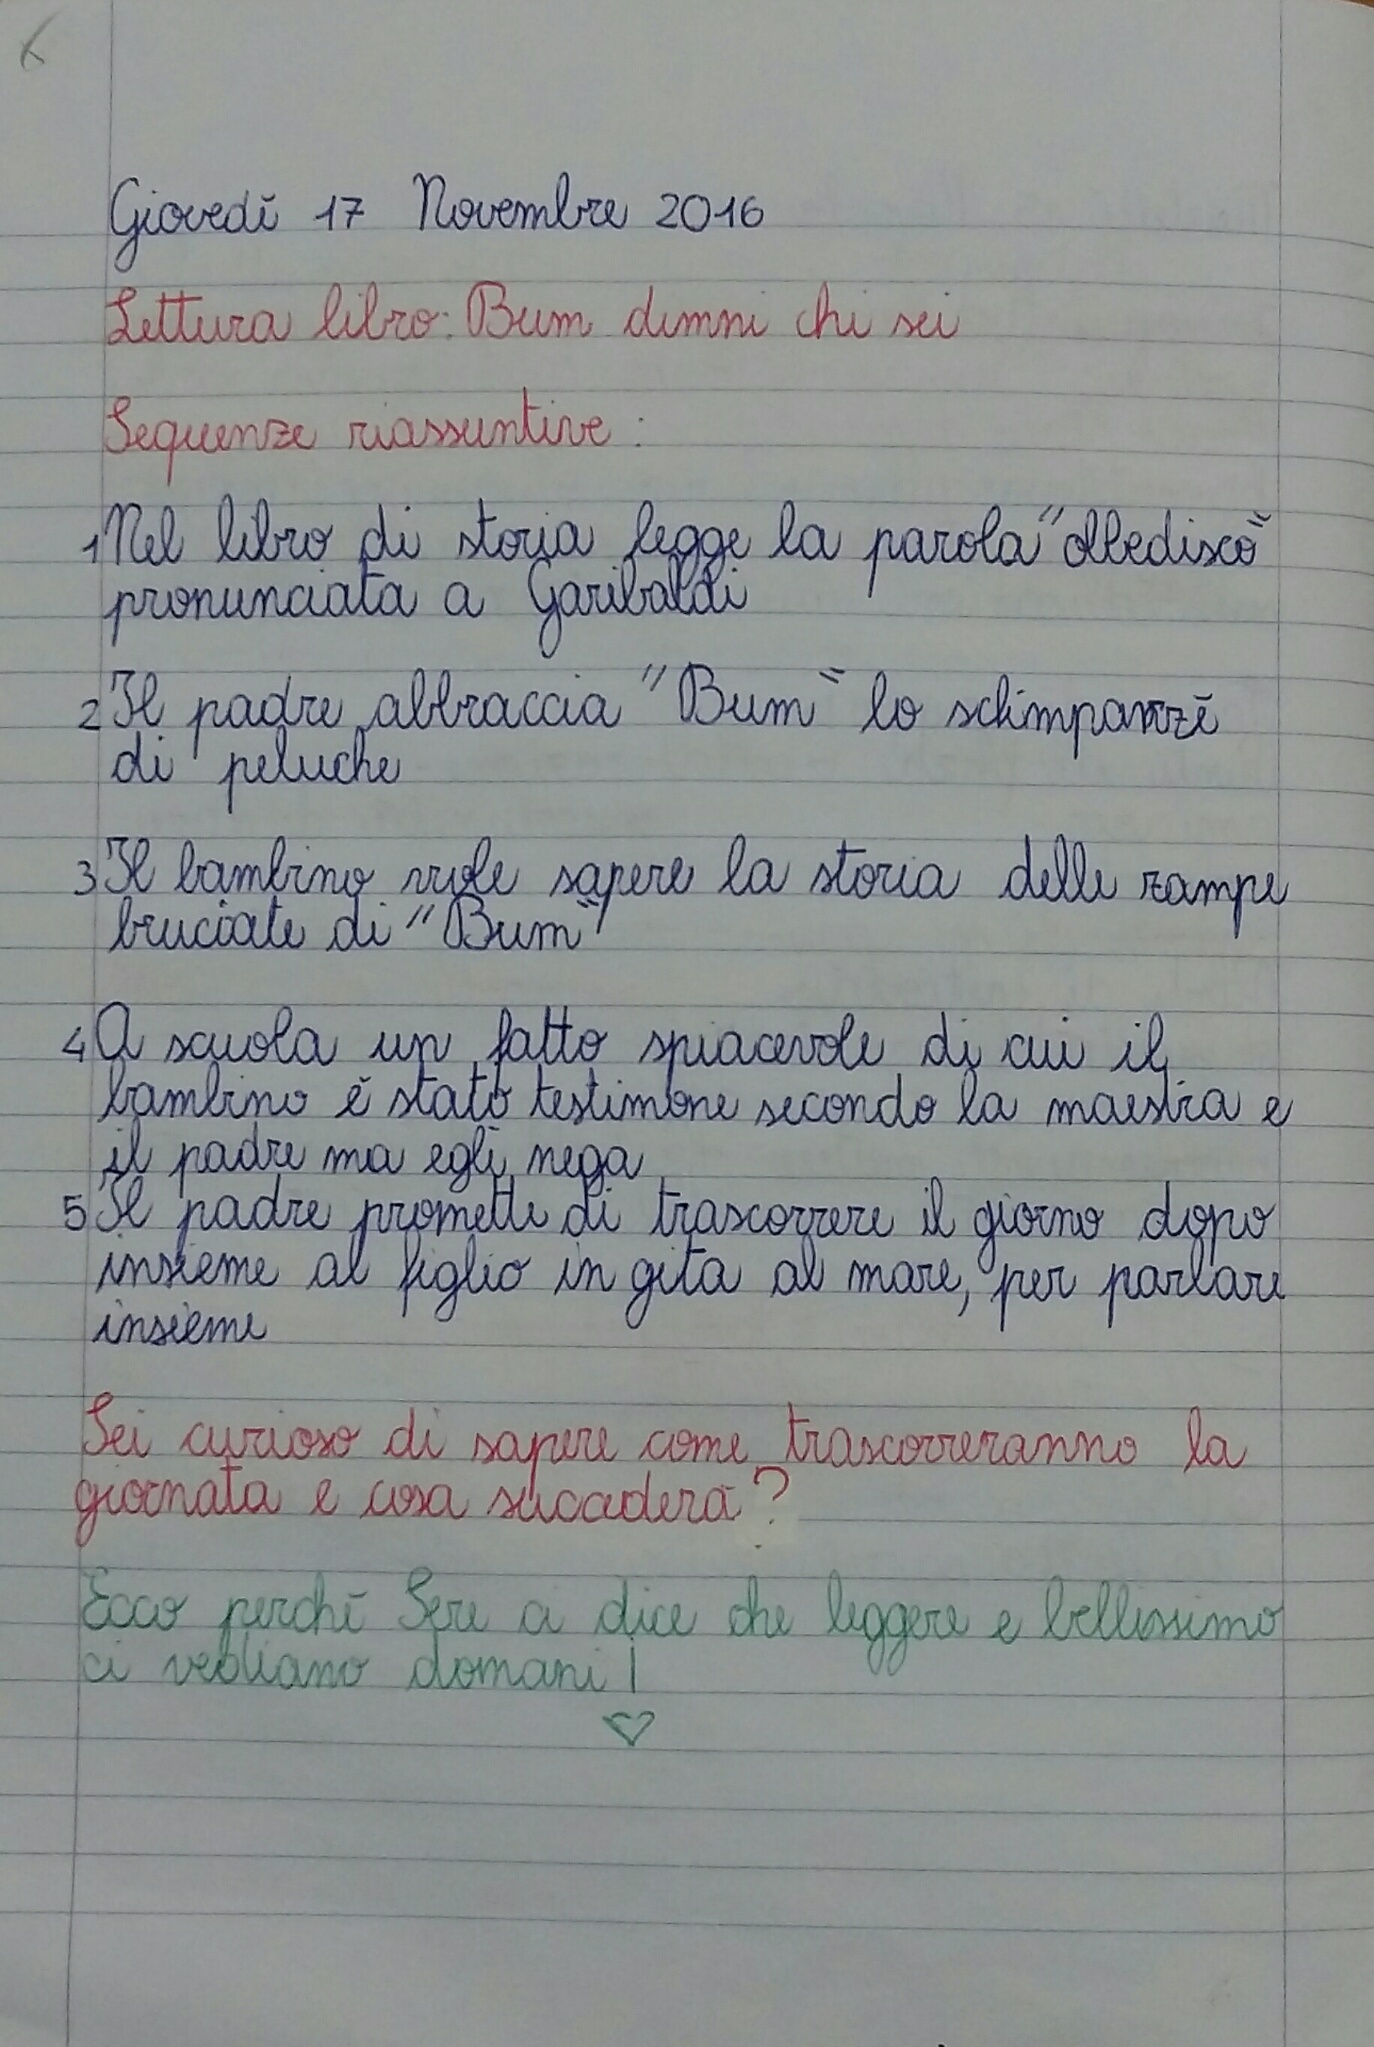 Giovedì 17 Novembre 2016
Lettura libro: Bum dimmi chi sei
Sequenze riassuntive:
1 Nel libro di storia legge la parola "obbedisco"
pronunciata a Garibaldi
2 Il padre abbraccia "Bum" lo schimpanzè
di peluche
3 Il bambino vuole sapere la storia delle zampe
bruciate di "Bum"
4 A scuola un fatto spiacevole di cui il
bambino è stato testimone secondo la maestra e
il padre ma egli nega
5 Il padre promette di trascorrere il giorno dopo
insieme al figlio in gita al mare, per parlare
insieme
Sei curioso di sapere come trascorreranno la
giornata e cosa succederà?
Ecco perchè Sere ci dice che leggere e bellissimo
ci vediano domani!